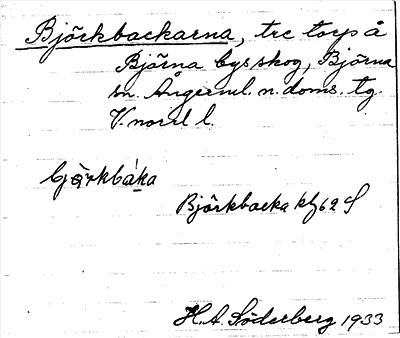 Björkbackarna, tre torp å
Björna bys skog, Björna
sn. Ångerml. n. doms. tg.
V. norrl l.
bjørkbáka
Björkbacka kbl 62 S
H.A. Söderberg 1933